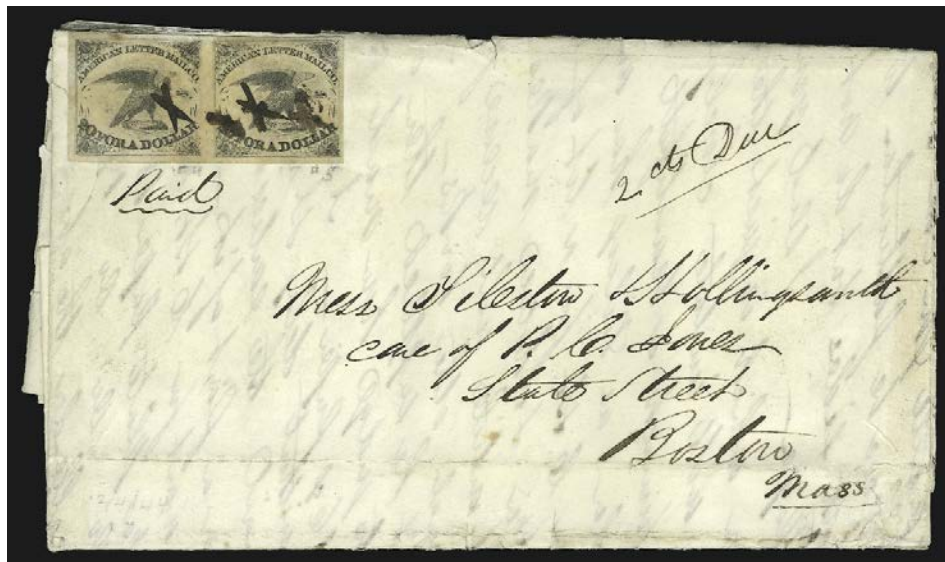 AMERICAN LETTER MAIL CO. AMERICAN LETTER MAIL CO.
20 FOR A DOLLAR FOR A DOLLAR
Paid
2 cts Due
Mess Tileston & Hollingsworth
care of P. C. Jones
State Street
Boston
Mass